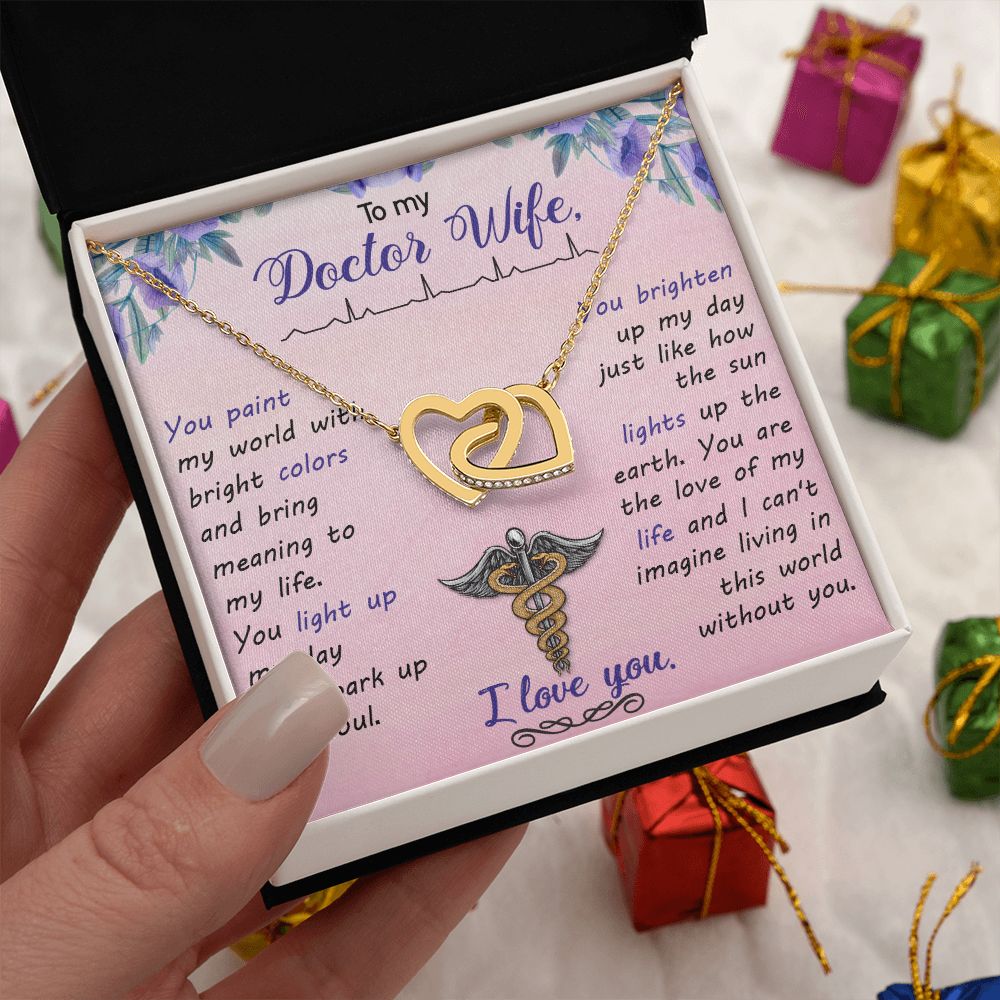 To my
Doctor Wife,
You paint
my world with
bright colors
and bring
meaning to
my life.
You light up
my day
spark up
soul.
You brighten
up my day
just like how
the sun
lights up the
earth. You are
the love of my
life and I can't
imagine living in
this world
without you.
I love you.